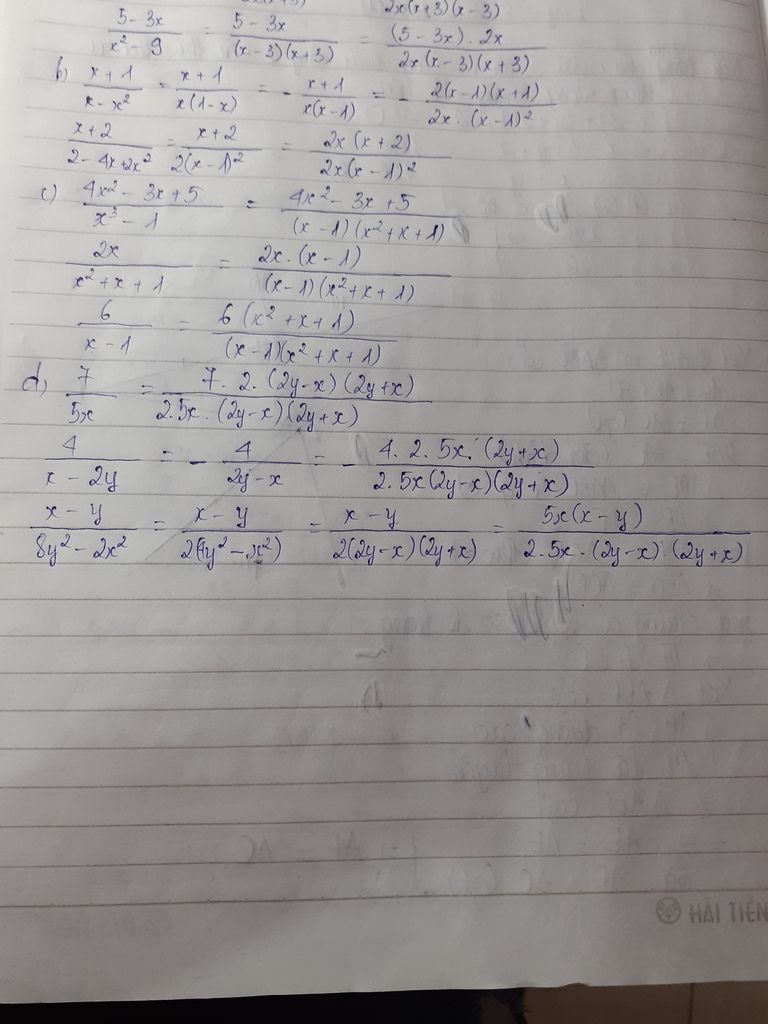 2x(x+3)(x-3)
5-3x / x² - 9 = 5-3x / (x-3)(x+3) = (5-3x).2x / 2x(x-3)(x+3)
b) x+1 / x-x² = x+1 / x(1-x) = - x+1 / x(x-1) = - 2(x-1)(x+1) / 2x.(x-1)²
x+2 / 2-4x+2x² = x+2 / 2(x-1)² = 2x(x+2) / 2x(x-1)²
c) 4x²-3x+5 / x³-1 = 4x²-3x+5 / (x-1)(x²+x+1)
2x / x²+x+1 = 2x.(x-1) / (x-1)(x²+x+1)
6 / x-1 = 6(x²+x+1) / (x-1)(x²+x+1)
d) 7 / 5x = 7.2.(2y-x)(2y+x) / 2.5x.(2y-x)(2y+x)
4 / x-2y = - 4 / 2y-x = - 4.2.5x.(2y+x) / 2.5x(2y-x)(2y+x)
x-y / 8y²-2x² = x-y / 2(4y²-x²) = x-y / 2(2y-x)(2y+x) = 5x(x-y) / 2.5x.(2y-x).(2y+x)
HẢI TIẾN